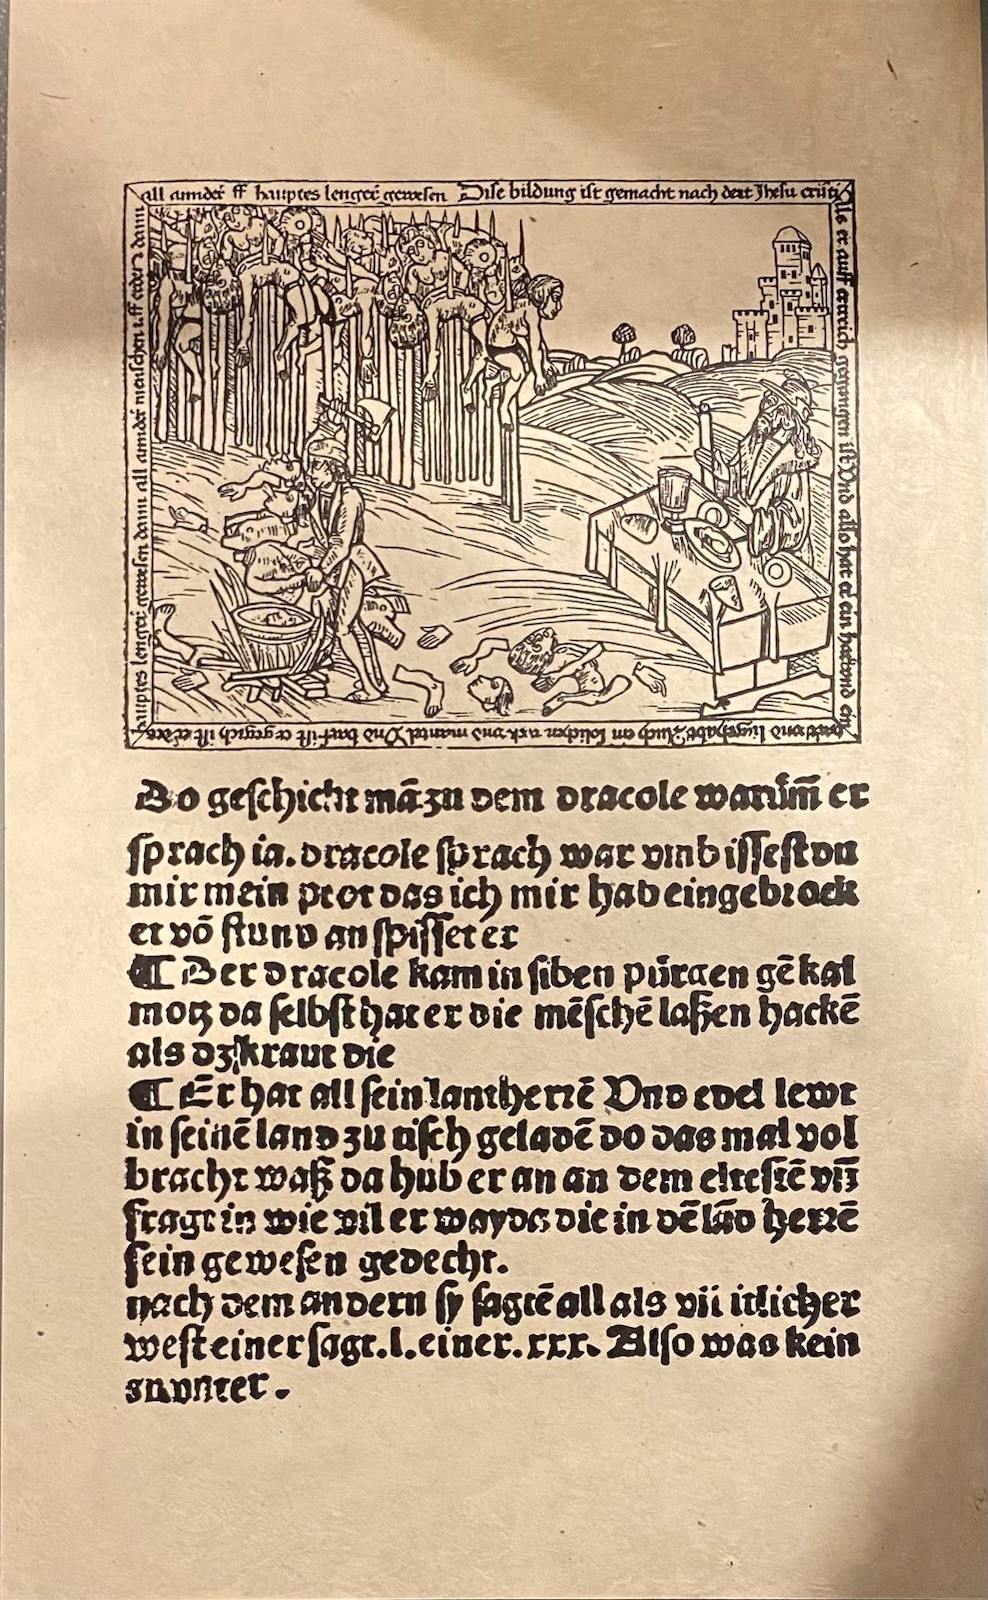 all annder ff hauptes lenger gewesen Dise bildung ist gemacht nach dert Jhesu cristi
Als er auff ertreich gegangen ist Vnd also hat er ein ein
vnd mantel Vnd barf ist er
hauptes lenger gewesen dann all annder menschen vff erden dann
Do geschicht mā zu dem dracole warūm̄ er
sprach ia. dracole sprach war vmb issest du
mir mein prot das ich mir hab eingebrock
et vō stund an spisset er
¶ Der dracole kam in siben pürgen gē kal
motz da selbst hat er die mēschē laßen hackē
als dz kraut die
¶ Er hat all sein lantherrē Vnd edel lewt
in seinē land zu tisch geladē do das mal vol
bracht waß da hub er an an dem eltestē vn̄
fragt in wie vil er wayda die in dē lād herrē
sein gewesen gedecht.
nach dem andern sy sagtē all als vil itlicher
west einer sagt. l. einer. xxx. Also was kein